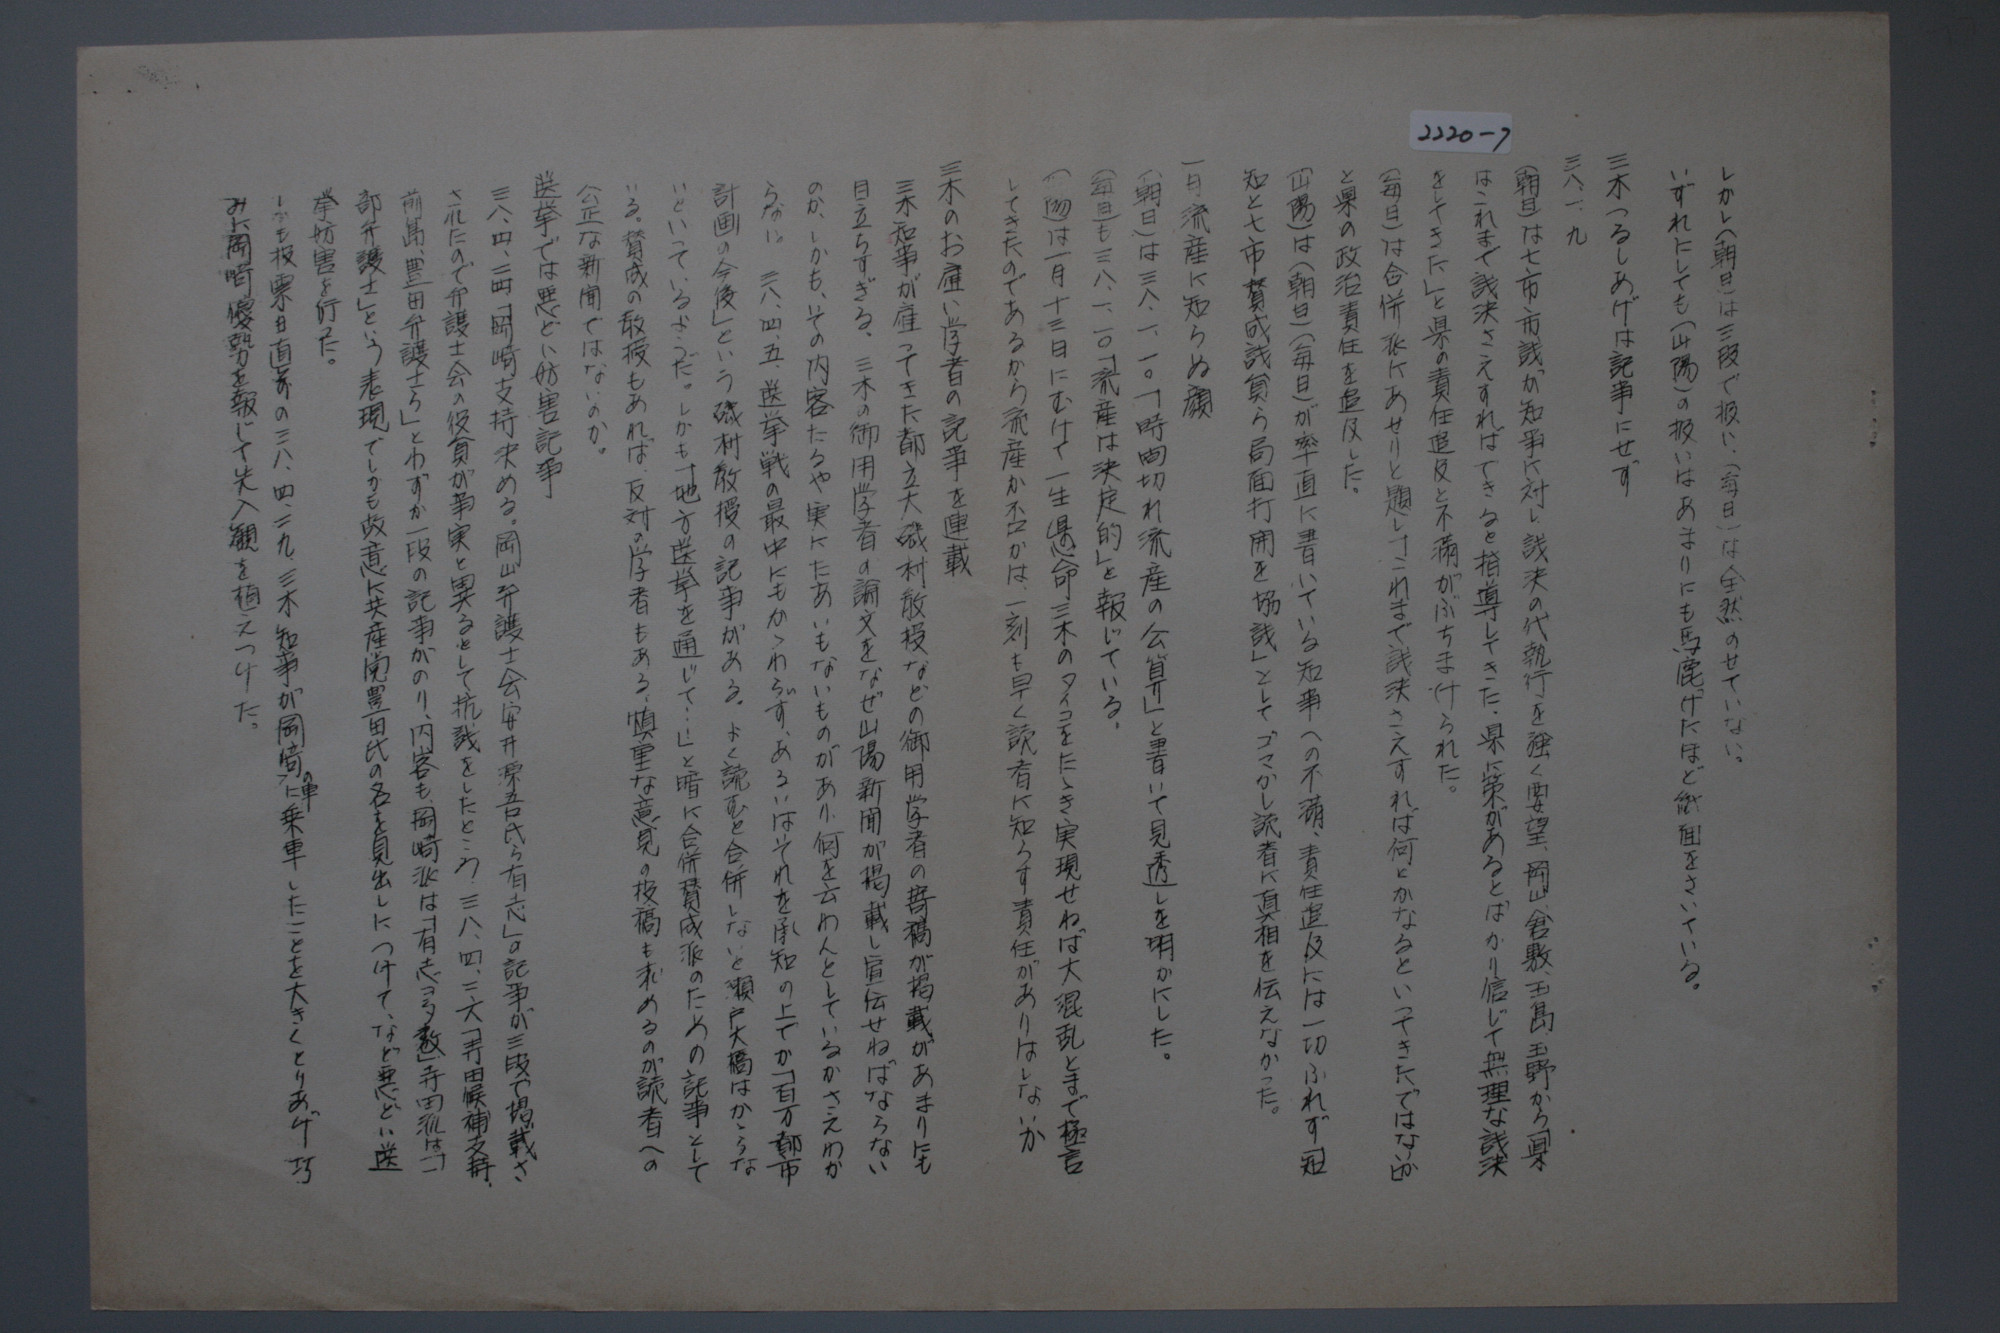 2220-7
しかし（朝日）は三段で扱い、（毎日）は全然のせていない。
いずれにしても（山陽）の扱いはあまりにも馬鹿げたほど紙面をさいている。
三木つるしあげは記事にせず
三八、一、九
（朝日）は七市市議が知事に対し議決の代執行を強く要望、岡山、倉敷、玉島、玉野から「県
はこれまで議決さえすればできると指導してきた、県に策があるとばかり信じて無理な議決
をしてきた」と県の責任追及と不満がぶちまけられた。
（毎日）は合併派にあせりと題し「これまで議決さえすれば何とかなるといってきたではないか」
と県の政治責任を追及した。
（山陽）は（朝日）（毎日）が率直に書いている知事への不満、責任追及には一切ふれず「知
知と七市賛成議員ら局面打開を協議」としてゴマかし読者に真相を伝えなかった。
一日流産に知らぬ顔
（朝日）は三八、一、一〇「時間切れ流産の公算」と書いて見透しを明かにした。
（毎日）も三八、一、一〇「流産は決定的」と報じている。
（山陽）は一月十三日にむけて一生懸命、三木のタイコをたゝき実現せねば大混乱とまで極言
してきたのであるから流産か否かは、一刻も早く読者に知らす責任がありはしないか
三木のお雇い学者の記事を連載
三木知事が雇ってきた都立大磯村教授などの御用学者の寄稿が掲載があまりにも
目立ちすぎる。三木の御用学者の論文をなぜ山陽新聞が掲載し宣伝せねばならない
のか、しかも、その内容たるや実にたあいもないものがあり、何を云わんとしているかさえわか
らない。三八、四、五、選挙戦の最中にもかゝわらず、あるいはそれを承知の上でか「百万都市
計画の今後」という磯村教授の記事がある。よく読むと合併しないと瀬戸大橋はかゝらな
いといっているようだ。しかも「地方選挙を通じて…」と暗に合併賛成派のための記事として
いる。賛成の教授もあれば、反対の学者もある、慎重な意見の投稿も求めるのが読者への
公正な新聞ではないのか。
選挙では悪どい妨害記事
三八、四、二四「岡崎支持決める。岡山弁護士会安井源吾氏ら有志」の記事が三段で掲載さ
されたので弁護士会の役員が事実と異るとして抗議をしたところ、三八、四、二六「寺田候補支持、
前島、豊田弁護士ら」とわずか一段の記事がのり、内容も、岡崎派は「有志多数」寺田派は「一
部弁護士」という表現でしかも故意に共産党豊田氏の名を見出しにつけて、など悪どい選
挙妨害を行った。
しかも投票日直前の三八、四、二九、三木知事が岡崎の車に乗車したことを大きくとりあげ巧
みに岡崎優勢を報じて先入観を植えつけた。